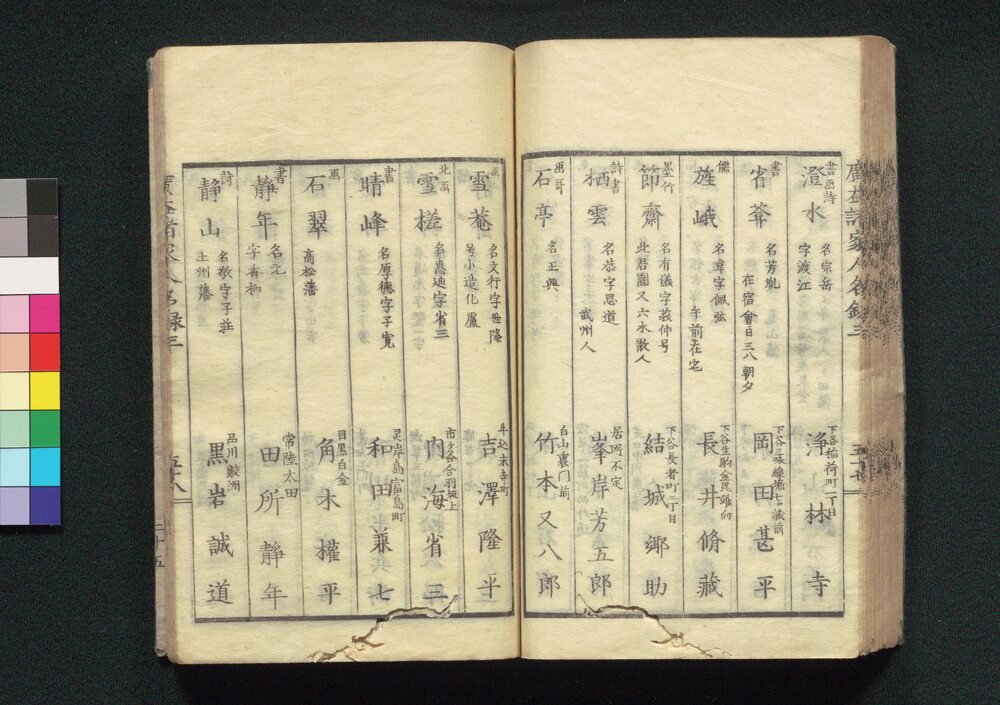 廣益諸家人名録三
五十七
書画詩
澄水
名宗岳
字渡江
下谷稲荷町一丁目
浄林寺
書
省菴
名芳胤
在宿會日三八朝夕
下谷三味線堀七曲蔵前
岡田甚平
儒
旌峨
名韋字佩弦
午前在宅
下谷生駒金毘羅向
長井脩蔵
墨竹
節齋
名有儀字義仲号
此君園又六水散人
下谷長者町二丁目
結城郷助
詩書
栖雲
名恭字思道
武州人
居所不定
峯岸芳五郎
画哥
石亭
名正興
白山裏門前
竹本又八郎
画
雪菴
名文行字世隆
号小造化廬
牛込末寺町
吉澤隆平
北画
雪槎
名惠迪字省三
市ヶ谷合羽坂上
内海省三
書
晴峰
名厚德字子寛
灵岸島富島町
和田兼七
画
石翠
髙松藩
目黒白金
角木權平
書
静年
名元
字壽柳
常陸太田
田所静年
詩
静山
名敬字子荘
土州藩
品川鮫洲
黒岩誠道
五十八
三十五